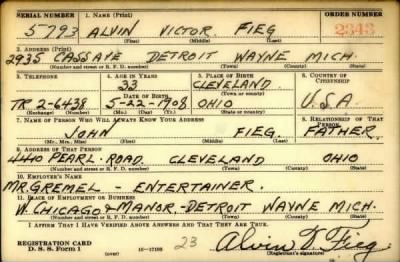 SERIAL NUMBER 1. NAME (Print) ORDER NUMBER
5793 ALVIN VICTOR FIEG 2343
(First) (Middle) (Last)
2. ADDRESS (Print)
2935 CASS AVE DETROIT WAYNE MICH.
(Number and street or R. F. D. number) (Town) (County) (State)
3. TELEPHONE 4. AGE IN YEARS 5. PLACE OF BIRTH 6. COUNTRY OF CITIZENSHIP
33 CLEVELAND
DATE OF BIRTH (Town or county)
TR 2-6438 5-22-1908 OHIO U.S.A
(Exchange) (Number) (Mo.) (Day) (Yr.) (State or country)
7. NAME OF PERSON WHO WILL ALWAYS KNOW YOUR ADDRESS 8. RELATIONSHIP OF THAT PERSON
JOHN FIEG. FATHER.
(Mr., Mrs., Miss) (First) (Middle) (Last)
9. ADDRESS OF THAT PERSON
4440 PEARL-ROAD. CLEVELAND OHIO
(Number and street or R. F. D. number) (Town) (County) (State)
10. EMPLOYER'S NAME
MR. GREMEL - ENTERTAINER.
11. PLACE OF EMPLOYMENT OR BUSINESS
W. CHICAGO & MANOR.-DETROIT WAYNE MICH.
(Number and street or R. F. D. number) (Town) (County) (State)
I AFFIRM THAT I HAVE VERIFIED ABOVE ANSWERS AND THAT THEY ARE TRUE.
REGISTRATION CARD
D. S. S. Form 1 (over) 16-17105 23 Alvin V. Fieg
(Registrant's signature)